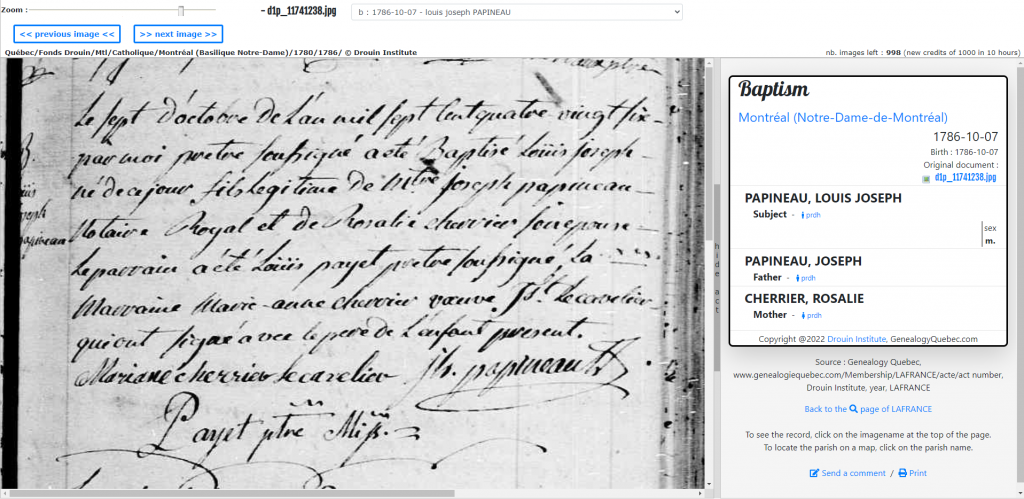 Zoom :
- d1p_11741238.jpg
b : 1786-10-07 - louis joseph PAPINEAU
<< previous image <<
>> next image >>
Québec/Fonds Drouin/Mtl/Catholique/Montréal (Basilique Notre-Dame)/1780/1786/ © Drouin Institute
nb. images left : 998 (new credits of 1000 in 10 hours)
Le sept d'octobre de L'an mil sept Cent quatre vingt six
par moi pretre soussigné a eté Baptisé Loüis joseph
né de ce jour fils Legitime de Mtre joseph papineau
Notaire Royal et de Rosalie cherrier son epouse
Le parrain a eté Loüis payet pretre soussigné La
Marraine Marie-anne cherrier vœuve Le cavelier
qui ont signé avec le pere de L'enfant present.
Mariane cherrier Lecavelier Jh. papineau
Payet ptre Miss.
B.
joseph
papineau
Baptism
Montréal (Notre-Dame-de-Montréal)
1786-10-07
Birth : 1786-10-07
Original document :
d1p_11741238.jpg
PAPINEAU, LOUIS JOSEPH
Subject - prdh
sex
m.
PAPINEAU, JOSEPH
Father - prdh
CHERRIER, ROSALIE
Mother - prdh
Copyright @2022 Drouin Institute, GenealogyQuebec.com
hide act
Source : Genealogy Quebec,
www.genealogiequebec.com/Membership/LAFRANCE/acte/act number,
Drouin Institute, year, LAFRANCE
Back to the page of LAFRANCE
To see the record, click on the imagename at the top of the page.
To locate the parish on a map, click on the parish name.
Send a comment / Print